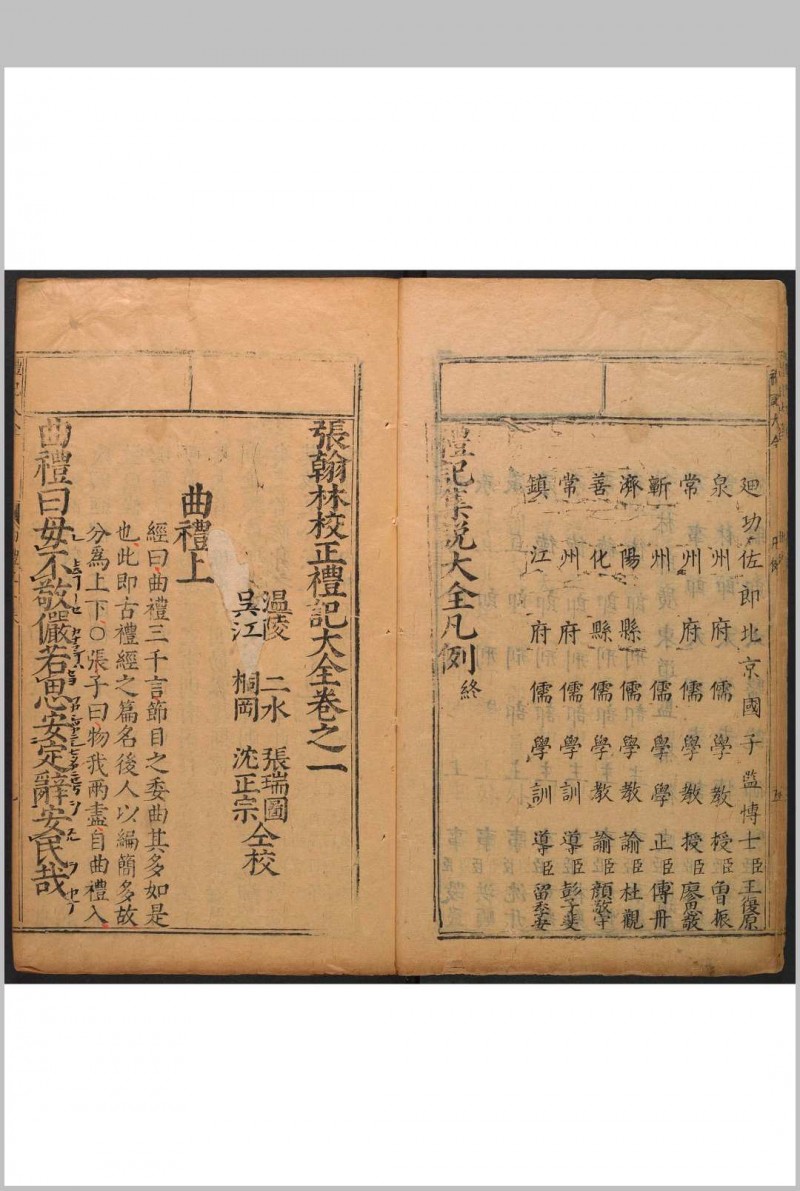 廸功佐郎北京國子監博士臣王復原
泉州府儒學教授臣曾振
常州府儒學教授臣廖思敬
蘄州儒學學正臣傅舟
濟陽縣儒學教諭臣杜觀
善化縣儒學教諭臣顏敬守
常州府儒學訓導臣彭子斐
鎮江府儒學訓導臣留季安
禮記集説大全凡例終
張翰林校正禮記大全卷之一
温陵 二水 張瑞圖
吳江 桐岡 沈正宗 仝校
曲禮上
經曰曲禮三千言節目之委曲其多如是
也此即古禮經之篇名後人以編簡多故
分為上下○張子曰物我兩盡自曲禮入
曲禮曰毋不敬儼若思安定辭安民哉